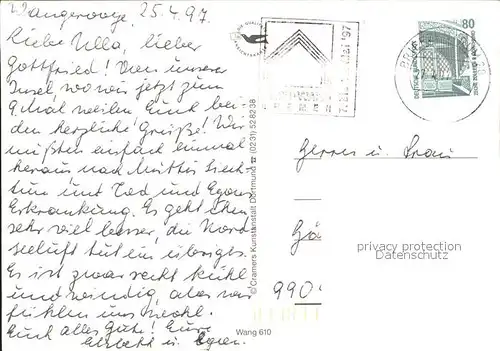 Wangerooge, 25.4.97.
Liebe Ulla, lieber
Gottfried! Von unserer
Insel, wo wir jetzt zum
9. Mal weilen, Euch bei-
den herzliche Grüße! Wir
mußten einfach einmal
heraus nach Muttis Siech-
tum und Tod und Egons
Erkrankung. Es geht ihm
sehr viel besser, die Nord-
seeluft tut ein übriges.
Es ist zwar recht kühl
und windig, aber wir
fühlen uns wohl.
Euch alles Gute! Eure
Elsbeth u. Egon.
© Cramers Kunstanstalt Dortmund ☎ (0231) 528238
Wang 610
80
DEUTSCHE BUNDESPOST
Herrn u. Frau
990
privacy protection
VERGRÖSSERUNG